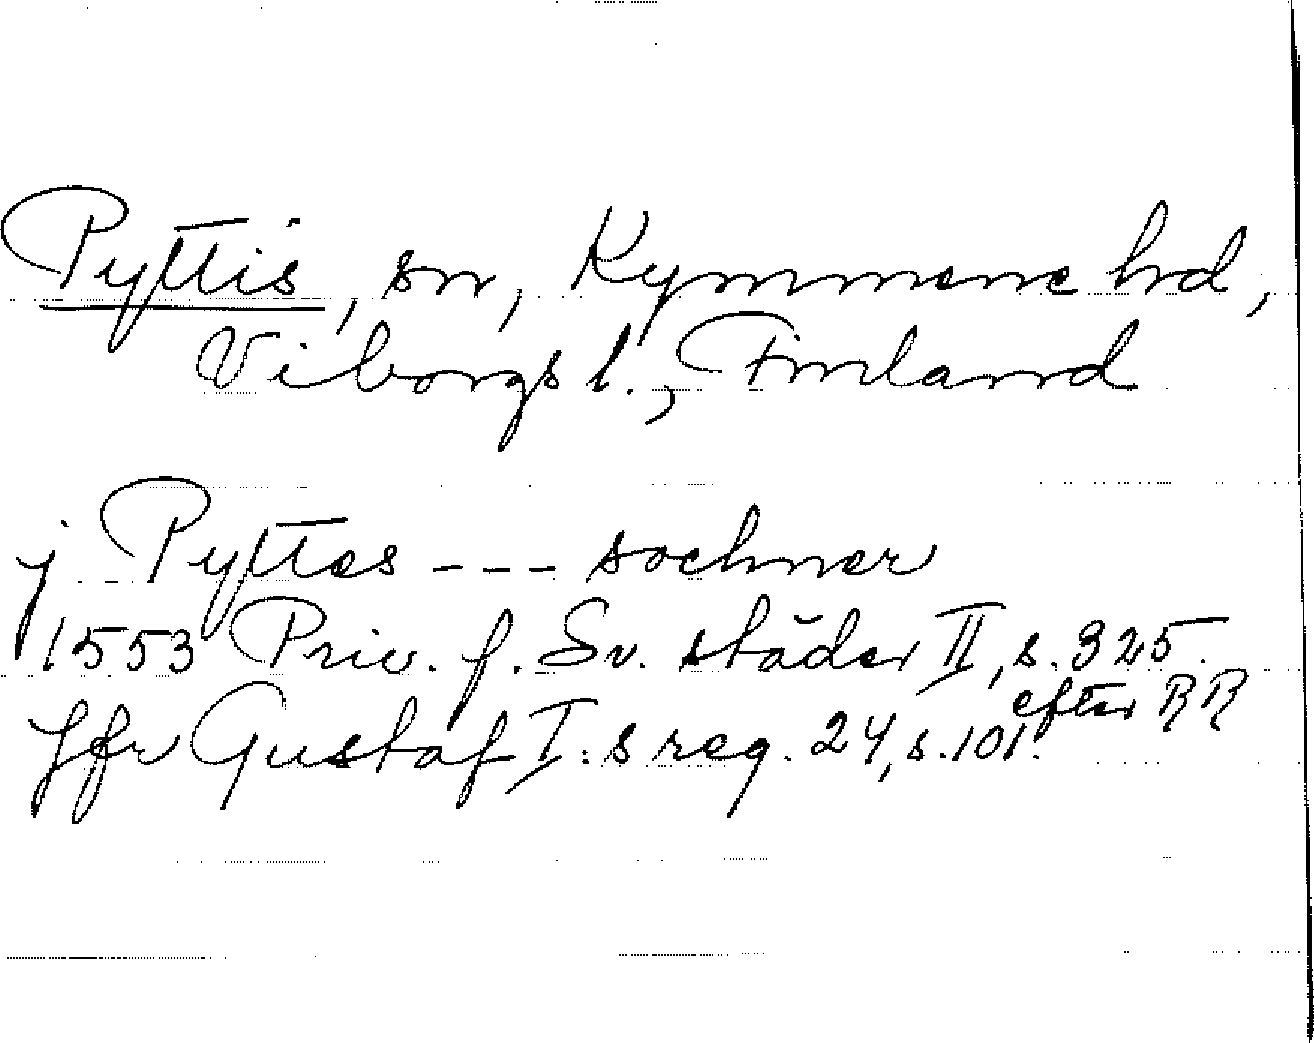 Pyttis, sn, Kymmene hd,
Viborgs l., Finland
j Pyttes --- sochner
1553 Priv. f. Sv. städer II, s. 325.
efter RR
Jfr Gustaf I:s reg. 24, s. 101.